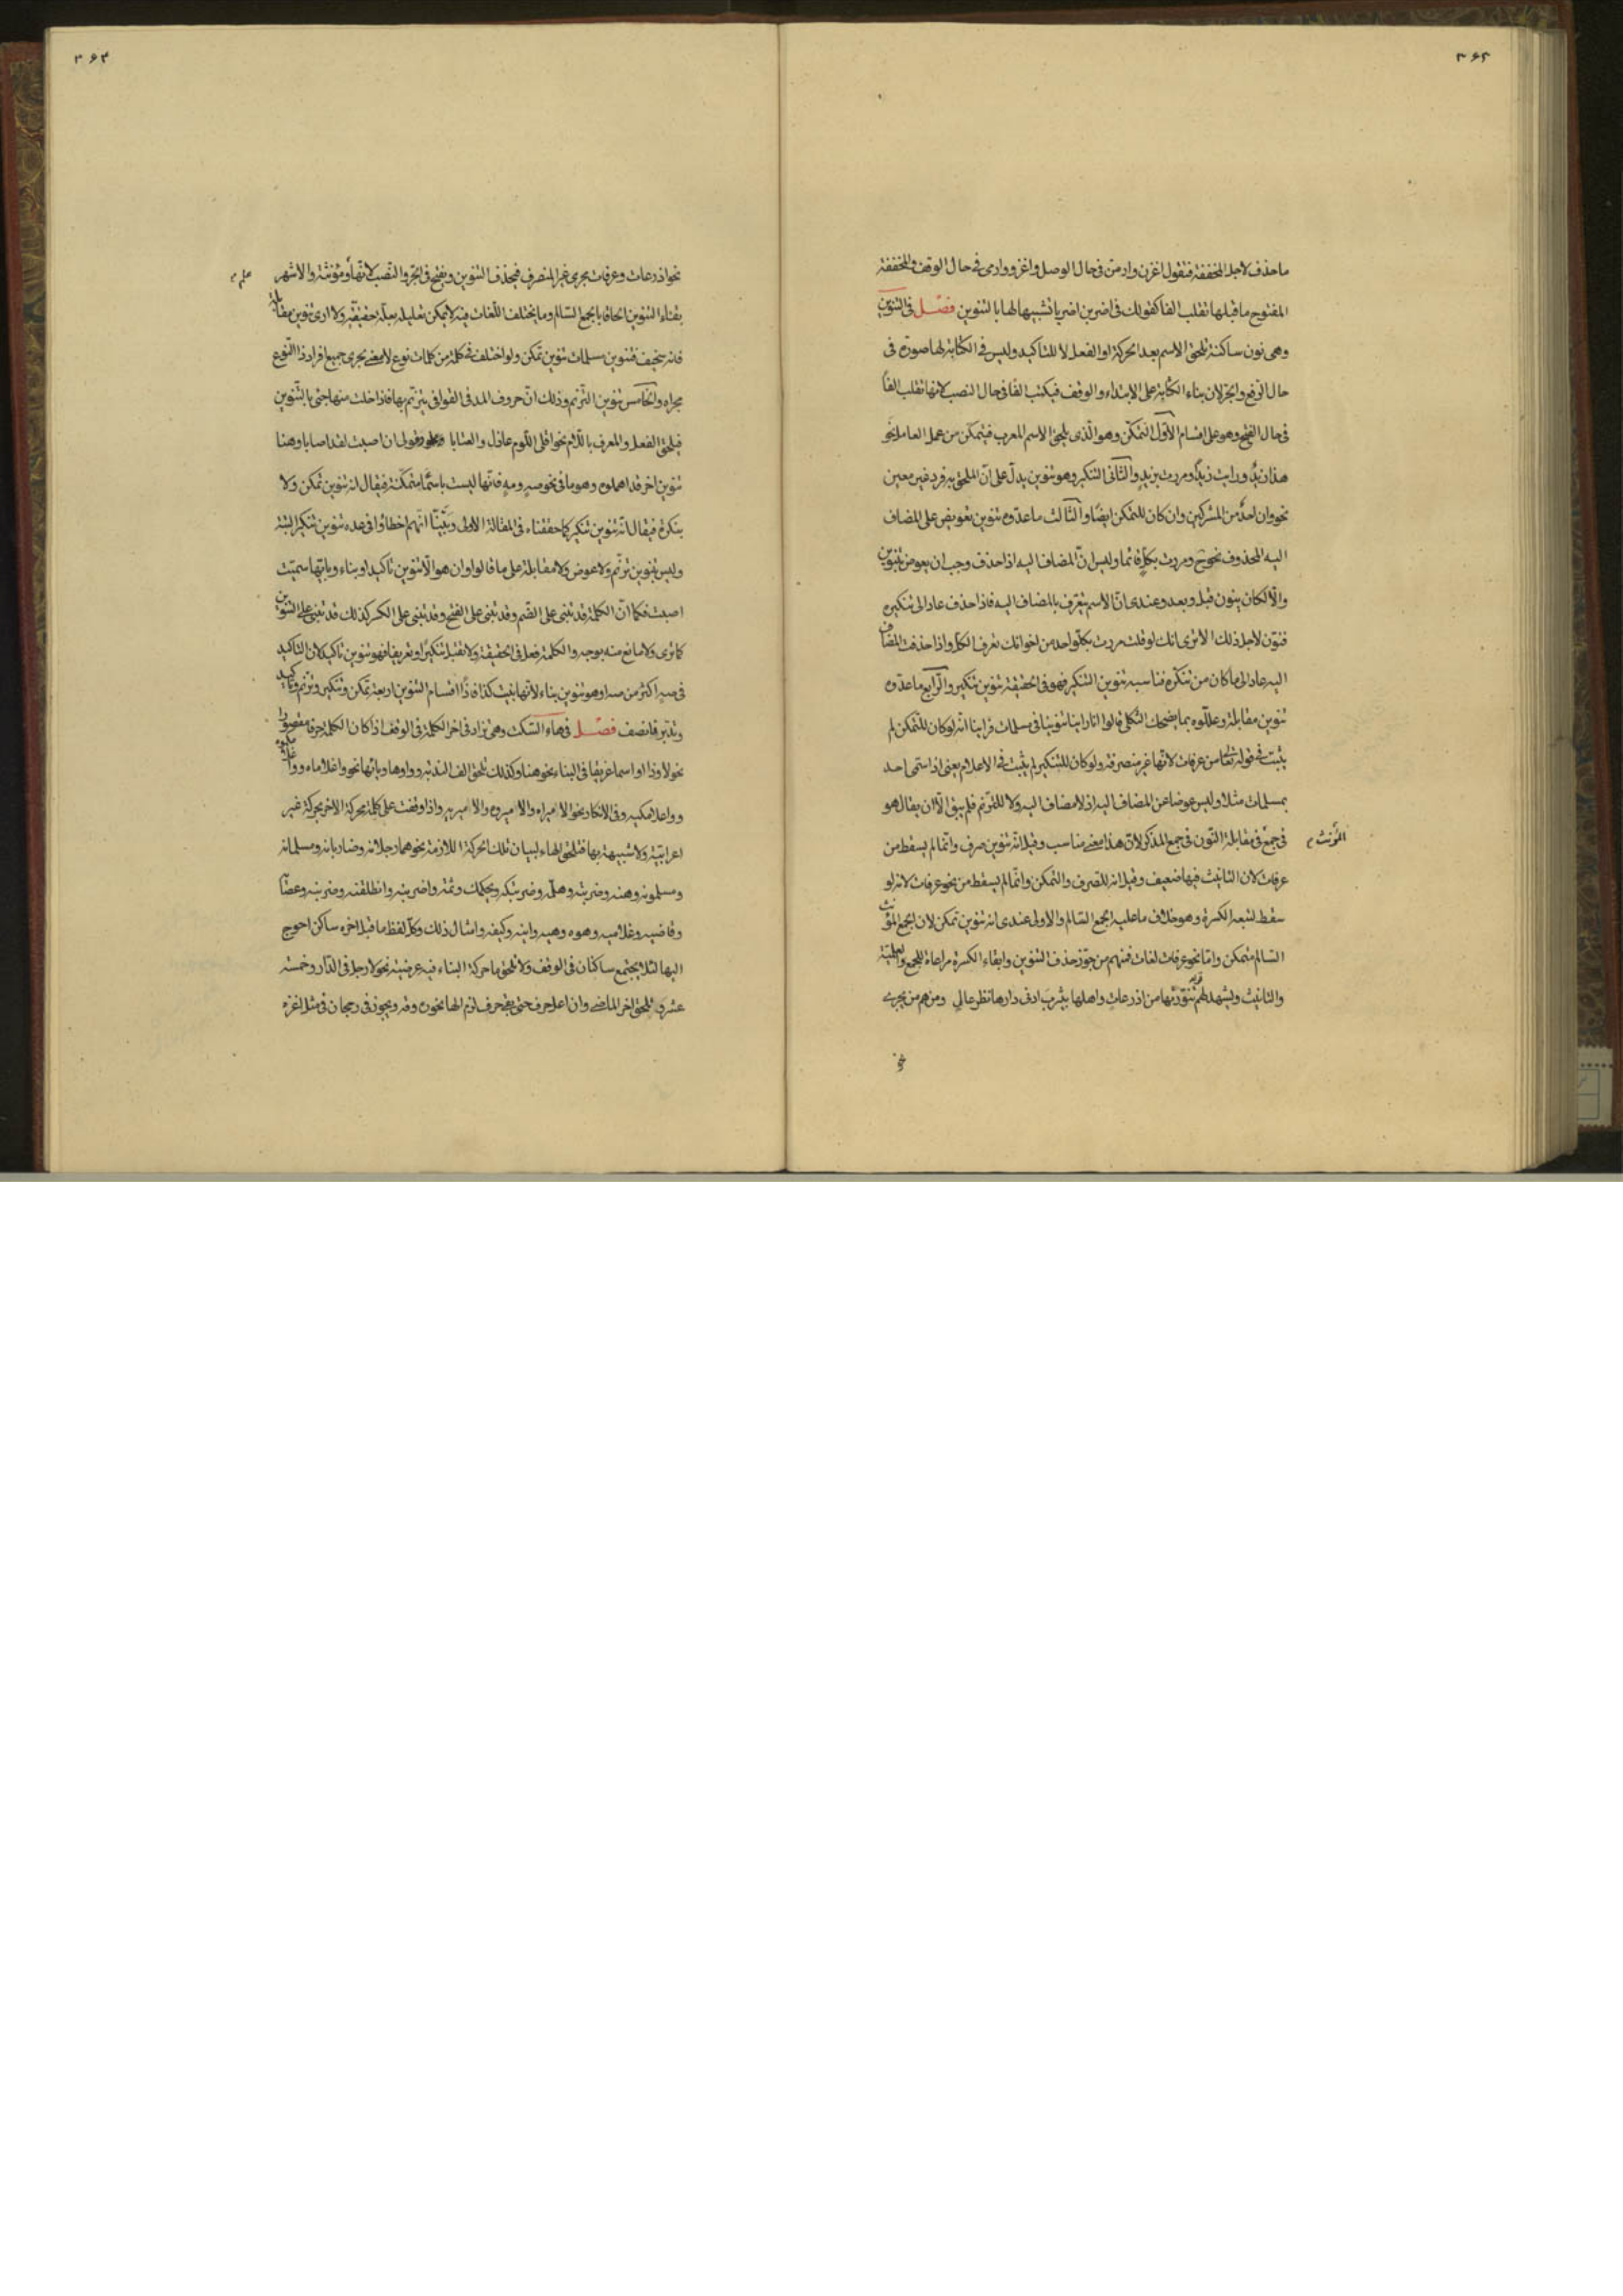 ۳۶۲
ما حذف لاجل المخففة فتقول اغزن وارمن فى حال الوصل واغزو وارمى فى حال الوقف والمخففة
المفتوح ما قبلها تقلب الفا كقولك فى اضربن اضربا تشبيها لها بالتنوين فصل فى التنوين
وهى نون ساكنة تلحق الاسم بعد الحركة او الفعل لا للتاكيد وليس فى الكتابة لها صورة فى
حال الرفع والجر لان بناء الكتابة على الابتداء والوقف فيكتب الفا فى حال النصب لانها تقلب الفا
فى حال الفتح وهو على اقسام الاول التمكن وهو الذى يلحق الاسم المعرب فيتمكن من عمل العامل نحو
هذا زيد ورايت زيدا ومررت بزيد والثانى التنكير وهو تنوين يدل على ان الملحق به فرد غير معين
نحو وان احد من المشركين وان كان للتمكن ايضا والثالث ما عدوه تنوين تعويض على المضاف
اليه المحذوف نحو صح ومررت بكل قائما وليس ان المضاف اليه اذا حذف وجب ان يعوض بتنوين
والا لكان ينون قبل وبعد وعندى ان الاسم يتعرف بالمضاف اليه فاذا حذف عاد الى تنكيره
فنون لاجل ذلك الا ترى انك لو قلت مررت بكل واحد من اخوانك تعرف الكل واذا حذفت المضاف
اليه عاد الى ما كان من تنكره فناسبه تنوين التنكير فهو فى الحقيقة تنوين تنكير والرابع ما عدوه
تنوين مقابلة وعللوه بما يضحك الثكلى قالوا انا راينا تنوينا فى مسلمات فراينا انه لو كان للتمكن لم
يثبت فى قوله تعالى من عرفات لانها غير منصرفة ولو كان للتنكير لم يثبت فى الاعلام يعنى اذا سمى احد
بمسلمات مثلا وليس عوضا عن المضاف اليه اذ لا مضاف اليه ولا للترنم فلم يبق الا ان يقال هو
فى جمع فى مقابلة النون فى جمع المذكر لان هذا معنى مناسب وقيل انه تنوين صرف وانما لم يسقط من
المؤنث م
عرفات لان التانيث فيها ضعيف وقيل انه للصرف والتمكن وانما لم يسقط من نحو عرفات لانه لو
سقط لتبعه الكسرة وهو خلاف ما عليه الجمع السالم والاولى عندى انه تنوين تمكن لان الجمع المؤنث
السالم متمكن واما نحو عرفات لغات فمنهم من جوز حذف التنوين وابقاء الكسرة مراعاة للجمع والعلمية
والتانيث ويشهد لهم قوله تنورتها من اذرعات واهلها بيثرب ادنى دارها نظر عالى ومنهم من يجرى
نحو
۳۶۳
نحو اذرعات وعرفات مجرى غير المنصرف فيحذف التنوين ويفتح فى الجر والنصب لانها مؤنثة والاشهر
علم م
بقاء التنوين الحاقا بالجمع السالم وما يختلف اللغات فيه لا يمكن تعليله بعلة حقيقة ولا ارى تنوين مقابلة
فانه سخيف فتنوين مسلمات تنوين تمكن ولو اختلف فى كلمة من كلمات نوع لا معنى يجرى جميع افراد ذا النوع
مجراه والخامس تنوين الترنم وذلك ان حروف المد فى القوافى يترنم بها فاذا خلت منها جئ بالتنوين
فيلحق الفعل والمعرف باللام نحو اقلى اللوم عاذل والعتابا وقولى ان اصبت لقد اصابا وهنا
تنوين اخر قد اهملوه وهو ما فى نحو صه ومه فانها ليست باسماء متمكنة فيقال انه تنوين تمكن ولا
بنكرة فيقال انه تنوين تنكير كما حققناه فى المقالة الاولى وبينا انهم اخطاوا فى عده تنوين تنكير البتة
وليس بتنوين ترنم ولا عوض ولا مقابلة على ما قالوا وان هو الا تنوين تاكيد او بناء وبايتها سميت
اصبت فكما ان الكلمة قد تبنى على الضم وقد تبنى على الفتح وقد تبنى على الكسر كذلك قد تبنى على التنوين
كما ترى ولا مانع منه بوجه والكلمة فعل فى الحقيقة ولا تقبل تنكيرا وتعريفا فهو تنوين تاكيد لان التاكيد
فى صه اكثر من صه او هو تنوين بناء لانها بنيت كذا فاذا اقسام التنوين اربعة تمكن وتنكير وترنم وتاكيد
وتدبر فانصف فصل فى هاء السكت وهى تزاد فى اخر الكلمة فى الوقف اذا كان الكلمة حرفا مقصورا
نحو لا وذا او اسما عريقا فى البناء نحو هنا وكذلك تلحق الف الندبة وواوها ويائها نحو واغلاماه وواغلامكوه
وواغلامكيه وفى الانكار نحو الاميراه والاميروه والاميريه واذا وقفت على كلمة محركة الاخر بحركة غير
اعرابية ولا شبيهة بها فتلحق الهاء لبيان تلك الحركة اللازمة نحو هما رجلانه وضاربانه ومسلمانه
ومسلمونه وهنه وضربته وهلمه وضربتكه وثمه واضربنه وانطلقنه وضربنه وعصاى
وقاضيه وغلاميه وهوه وهيه واينه وكيفه وامثال ذلك وكل لفظ ما قبل اخره ساكن احوج
اليها لئلا يجتمع ساكنان فى الوقف ولا تلحق ما حركة البناء فيه عرضية نحو لا رجل فى الدار وخمسة
عشر ولا تلحق اخر الماضى وان اعل حرف حتى بقى حرف لزم الهاء نحو ره وقه ويجوز فى رجحان فى مثل اغزه